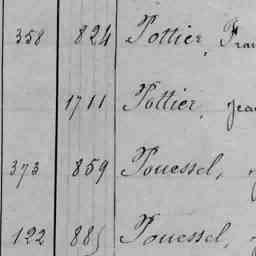 358 824 Pottier, Fran
1711 Pottier, Jea
373 859 Pouessel,
122 885 Pouessel,